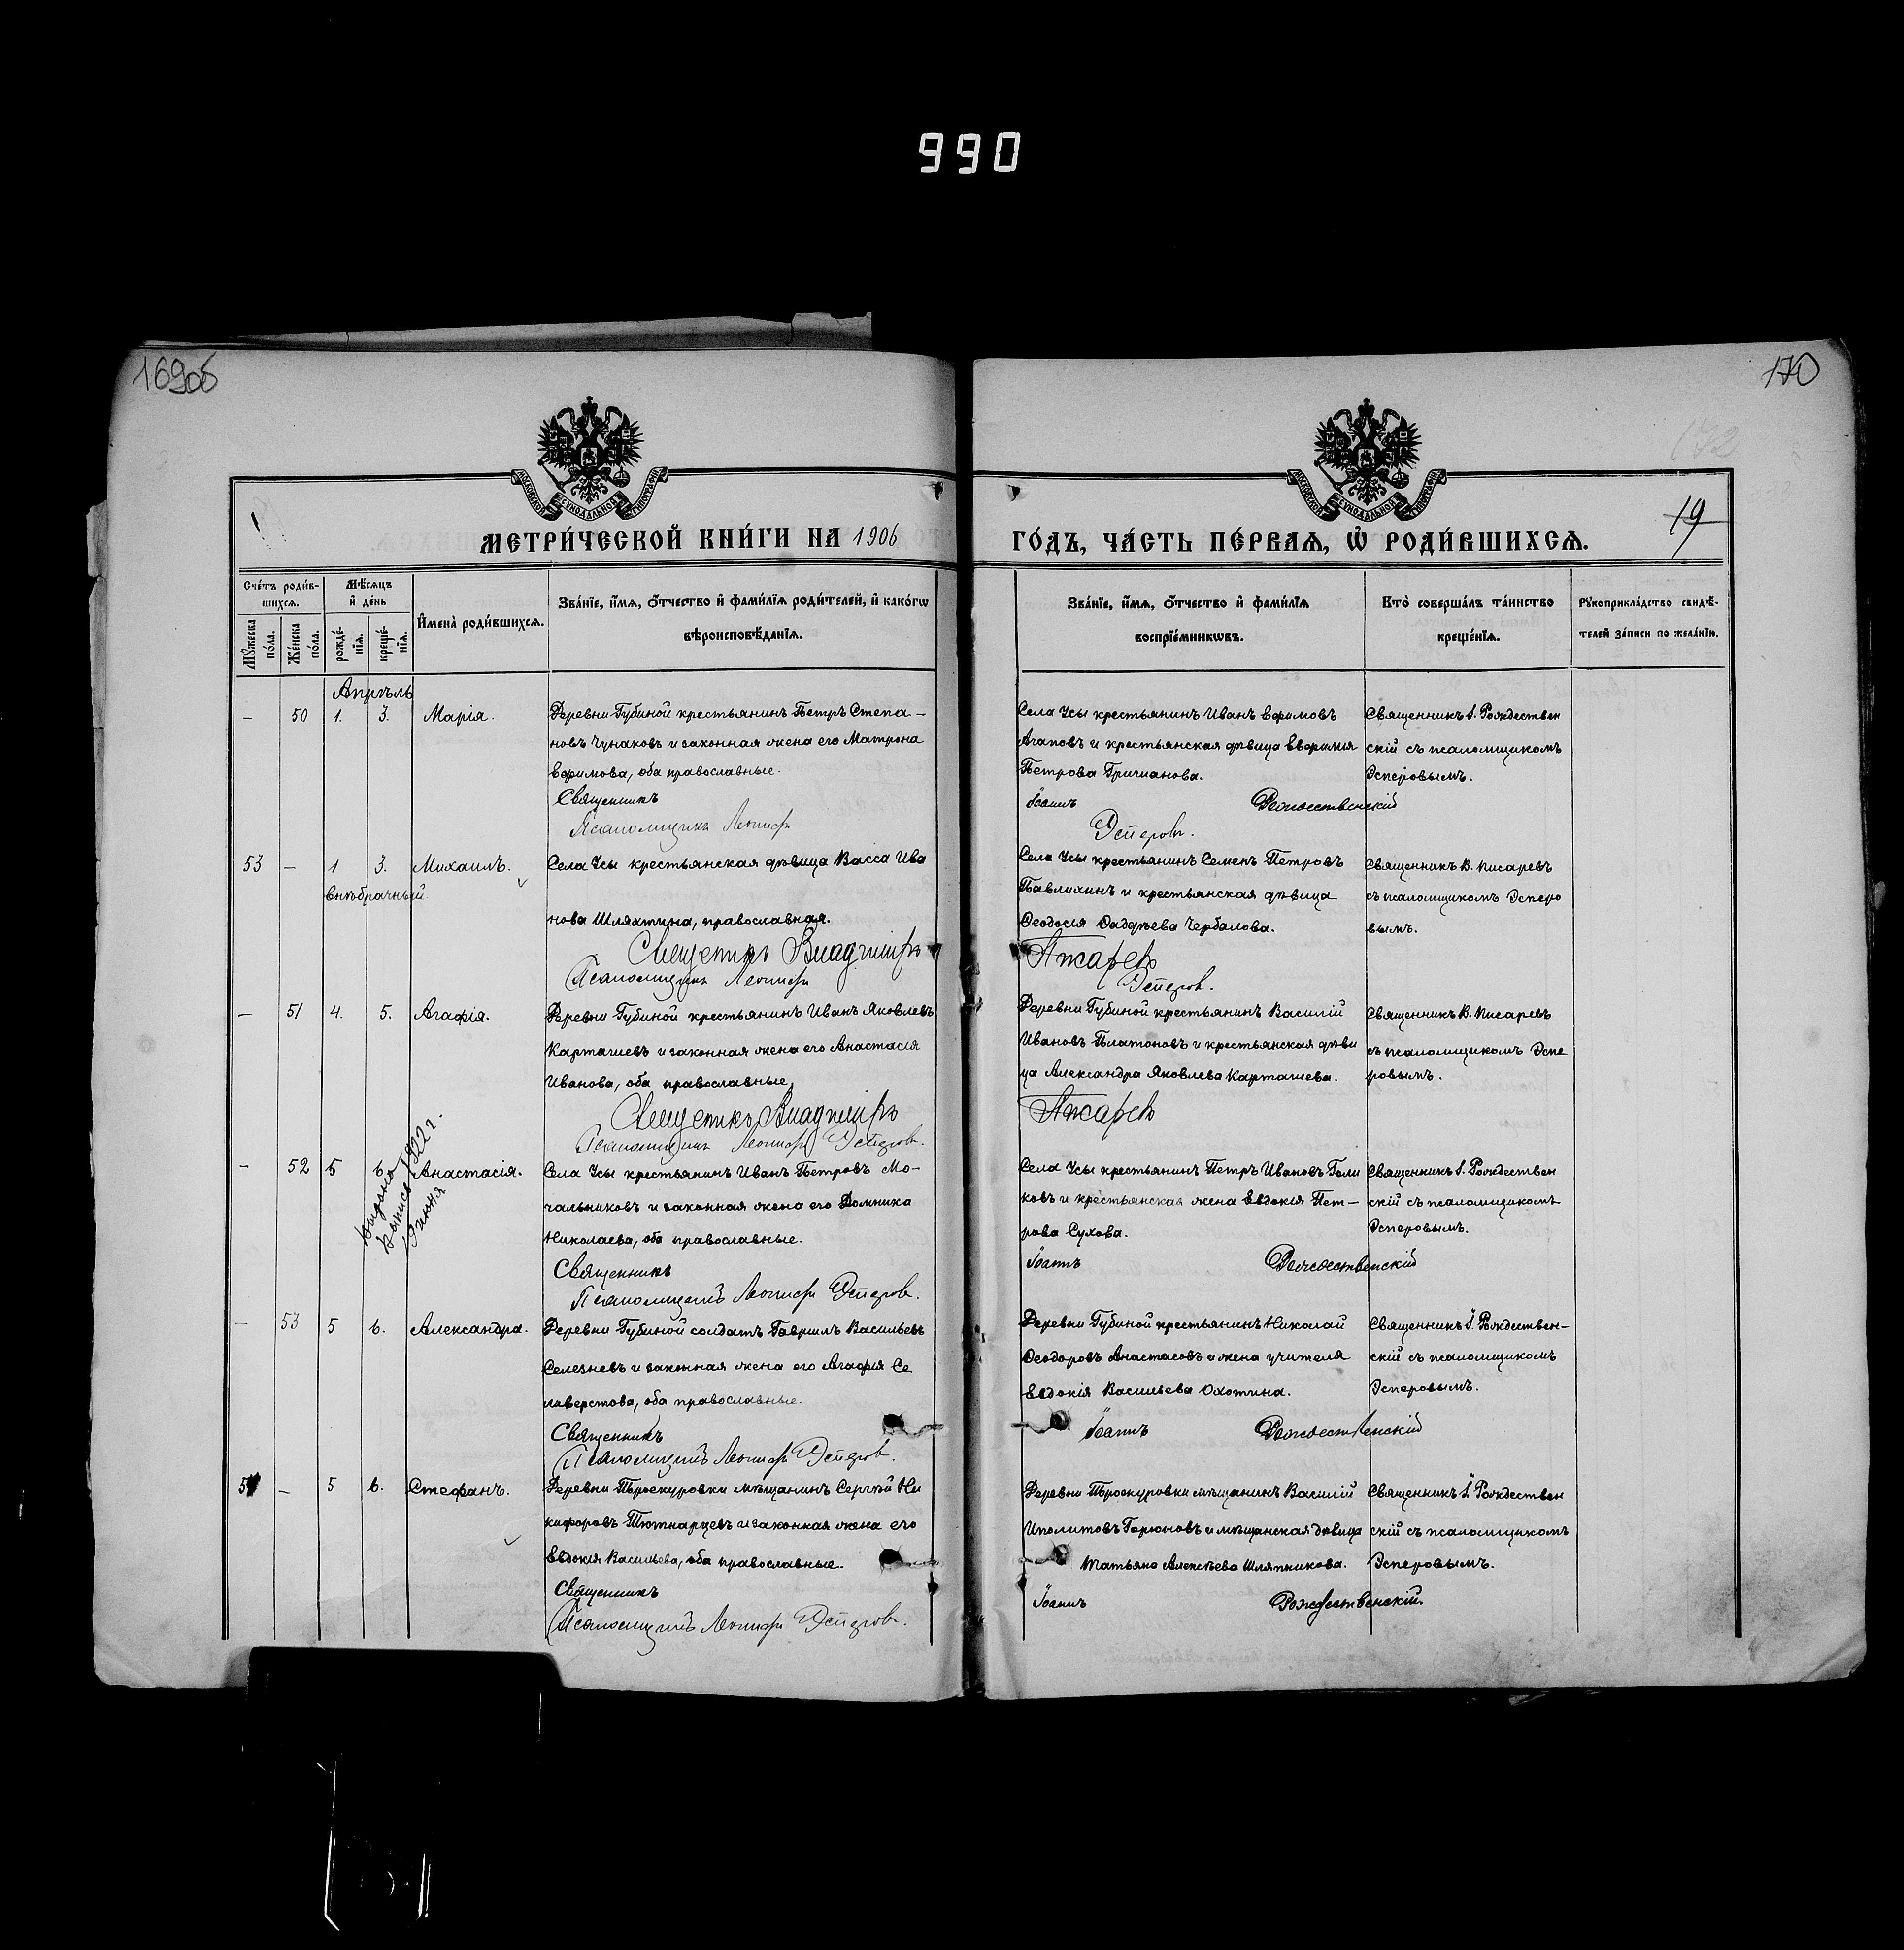 990
169об
170
172
19
МОСКОВСКОЙ СѴНОДАЛЬНОЙ ТИПОГРАФІИ
МОСКОВСКОЙ СѴНОДАЛЬНОЙ ТИПОГРАФІИ
МЕТРИ́ЧЕСКОЙ КНИ́ГИ НА 1906
ГО́ДЪ, ЧА́СТЬ ПЕ́РВАЯ, Ѡ РОДИ́ВШИХСЯ.
Сче́тъ роди́в-
шихся.
Мꙋ́жеска по́ла.
Же́нска по́ла.
Мѣ́сяцъ и де́нь
рожде́-нія.
креще́-нія.
Имена̀ роди́вшихся.
Зва́ніе, и́мя, о́тчество и фами́лія роди́телей, и како́гѡ
вѣроисповѣ́данія.
Зва́ніе, и́мя, о́тчество и фами́лія
воспріе́мникѡвъ.
Кто̀ соверша́лъ та́инство
креще́нія.
Рꙋкоприкла́дство свидѣ́-
телей за́писи по жела́нію.
Апрѣль
— 50 1. 3. Марія.
Деревни Губиной крестьянинъ Петръ Степа-
новъ Чунаковъ и законная жена его Матрона
Ефимова, оба православные.
Священникъ
Псаломщикъ Леонидъ
Села Усы крестьянинъ Иванъ Ефимовъ
Агаповъ и крестьянская дѣвица Евфимія
Петрова Гричианова.
Іоаннъ Рождественскій
Эсперовъ.
Священникъ І. Рождествен
скій съ псаломщикомъ
Эсперовымъ.
53 — 1 3. Михаилъ.
внѣбрачный
Села Усы крестьянская дѣвица Васса Ива
нова Шляхтина, православная.
Священникъ Владиміръ
Псаломщикъ Леонидъ
Села Усы крестьянинъ Семенъ Петровъ
Павлихинъ и крестьянская дѣвица
Ѳеодосія Ѳаддѣева Чербалова.
Писаревъ
Эсперовъ.
Священникъ В. Писаревъ
съ псаломщикомъ Эсперо
вымъ.
— 51 4. 5. Агафія.
Деревни Губиной крестьянинъ Иванъ Яковлевъ
Карташевъ и законная жена его Анастасія
Иванова, оба православные,
Священникъ Владиміръ
Псаломщикъ Леонидъ Эсперовъ.
Деревни Губиной крестьянинъ Василій
Ивановъ Платоновъ и крестьянская дѣви
ца Александра Яковлева Карташева.
Писаревъ
Священникъ В. Писаревъ
съ псаломщикомъ Эспе
ровымъ.
— 52 5 6. Анастасія.
Выдана
выпись 1922 г.
19 июня
Села Усы крестьянинъ Иванъ Петровъ Мо-
чальниковъ и законная жена его Домника
Николаева, оба православные.
Священникъ
Псаломщикъ Леонидъ Эсперовъ.
Села Усы крестьянинъ Петръ Ивановъ Голи
ковъ и крестьянская жена Евдокія Пет-
рова Сухова.
Іоаннъ Рождественскій
Священникъ І. Рождествен
скій съ псаломщикомъ
Эсперовымъ.
— 53 5 6. Александра.
Деревни Губиной солдатъ Гавріилъ Васильевъ
Селезневъ и законная жена его Агафія Се
ливерстова, оба православные.
Священникъ
Псаломщикъ Леонидъ Эсперовъ.
Деревни Губиной крестьянинъ Николай
Ѳеодоровъ Анастасовъ и жена учителя
Евдокія Васильева Охотина.
Іоаннъ Рождественскій
Священникъ І. Рождествен-
скій съ псаломщикомъ
Эсперовымъ.
54 — 5 6. Стефанъ.
Деревни Троекуровки мѣщанинъ Сергѣй Ни
кифоровъ Тютнарцевъ и законная жена его
Евдокія Васильева, оба православные.
Священникъ
Псаломщикъ Леонидъ Эсперовъ.
Деревни Троекуровки мѣщанинъ Василій
Иполитовъ Горюновъ и мѣщанская дѣвица
Татьяна Алексѣева Шляпникова.
Іоаннъ Рождественскій.
Священникъ І. Рождествен
скій съ псаломщикомъ
Эсперовымъ.